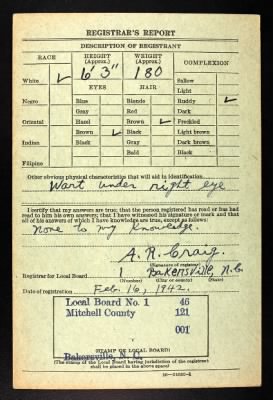 REGISTRAR'S REPORT
DESCRIPTION OF REGISTRANT
RACE HEIGHT (Approx.) WEIGHT (Approx.) COMPLEXION
White ✓ 6' 3" 180 Sallow
EYES HAIR Light
Negro Blue Blonde Ruddy ✓
Gray Red Dark
Oriental Hazel Brown ✓ Freckled
Brown ✓ Black Light brown
Indian Black Gray Dark brown
Bald Black
Filipino
Other obvious physical characteristics that will aid in identification
Wart under right eye
I certify that my answers are true; that the person registered has read or has had
read to him his own answers; that I have witnessed his signature or mark and that
all of his answers of which I have knowledge are true, except as follows:
None to my knowledge.
A. R. Craig.
(Signature of registrar)
Registrar for Local Board 1 Bakersville, N.C.
(Number) (City or county) (State)
Date of registration Feb. 16, 1942.
Local Board No. 1 46
Mitchell County 121
001
Bakersville, N. C.
(STAMP OF LOCAL BOARD)
(The stamp of the Local Board having jurisdiction of the registrant
shall be placed in the above space)